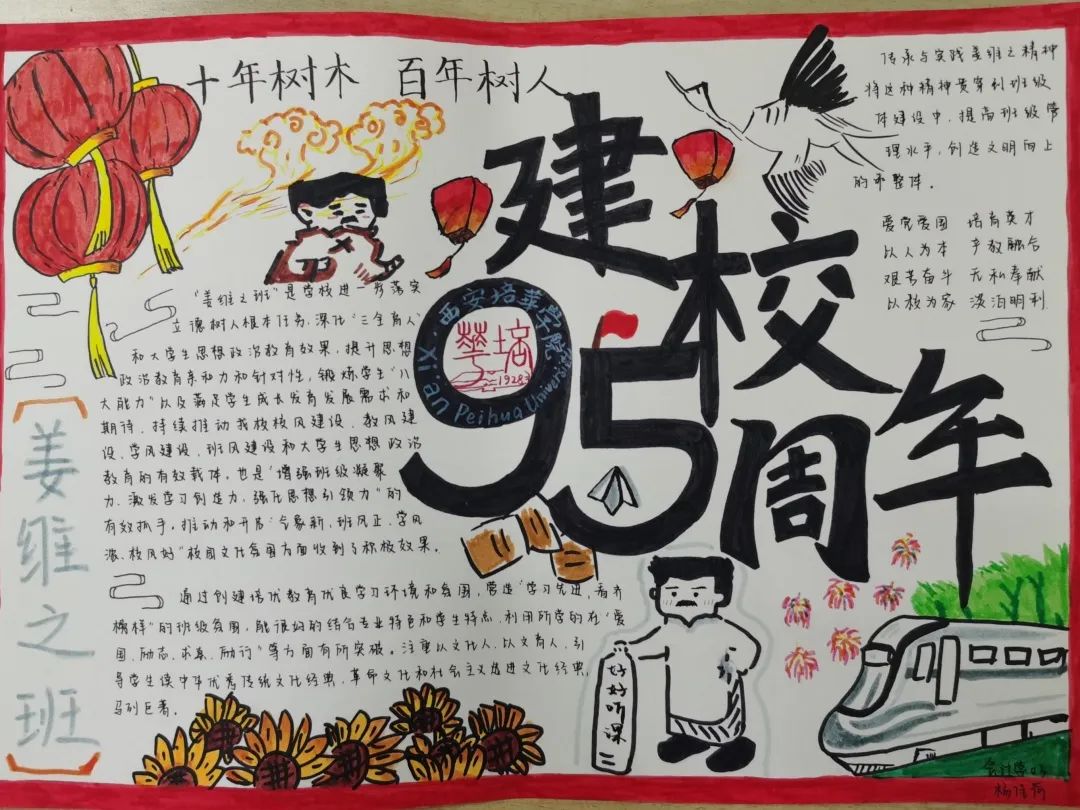 十年树木 百年树人
建校
95
周年
西安培华学院
Xi'an Peihua University
培華
1928
传承与实践姜维之精神
将这种精神贯穿到班级
体建设中，提高班级管
理水平，创造文明向上
的
整体。
爱党爱国 培育英才
以人为本 乎教融合
艰苦奋斗 无私奉献
以校为家 淡泊明利
"姜维之班"是学校进一步落实
立德树人根本任务，深化"三全育人"
和大学生思想政治教育效果，提升思想
政治教育亲和力和针对性，锻炼学生"八
大能力"以及满足学生成长发育发展需求和
期待，持续推动我校校风建设、教风建
设、学风建设、班风建设和大学生思想政治
教育的有效载体，也是"增强班级凝聚
力、激发学习创造力、强化思想引领力"的
有效抓手。推动和开启"气象新，班风正，学风
浓，校风好"校园文化氛围方面收到了积极效果。
通过创建培优教育优良学习环境和氛围，营造"学习先进，看齐
榜样"的班级氛围，能很好的结合专业特色和学生特点，利用所学的在"爱
国、励志、求真、励行"等方面有所突破。注重以文化人、以文育人，引
导学生读中华优秀传统文化经典，革命文化和社会主义先进文化经典，
马列巨著。
【姜维之班】
好好听课